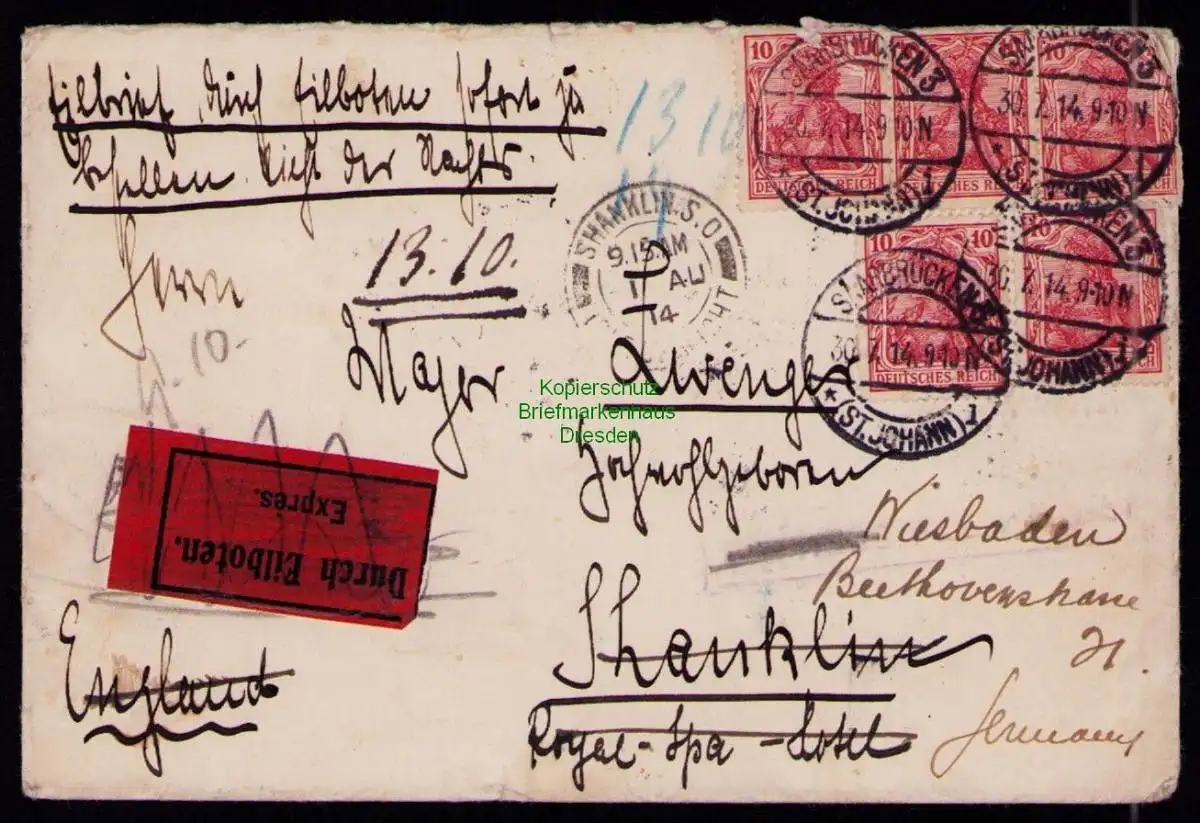 Eilbrief durch Eilboten sofort zu
bestellen. Nicht des Nachts.
13 10
13.10.
Herrn
10.
Major
Hochwohlgeboren
Shanklin
Royal-Spa-Hotel
England
Wiesbaden
Beethovenstrasse
Germany
Durch Eilboten.
Expres.
SHANKLIN. S. O
9.15 AM
1 AU
14
I GHT
10
DEUTSCHES REICH
10
DEUTSCHES REICH
10
REICH
10 10
DEUTSCHES REICH
10
SAARBRÜCKEN 3
30. 7. 14. 9-10 N
* (ST. JOHANN) 1
SAARBRÜCKEN 3
30. 7. 14. 9-10 N
* (ST. JOHANN) 1
SAARBRÜCKEN 3
30. 7. 14. 9-10 N
* (ST. JOHANN) 1
SAARBRÜCKEN 3
30. 7. 14. 9-10 N
(ST. JOHANN) 1
Kopierschutz
Briefmarkenhaus
Dresden